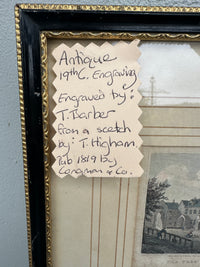 Antique
19th C. Engraving
Engraved by:
T. Barber
from a scetch
by: T. Higham,
Pub 1819 by
Longman & Co.